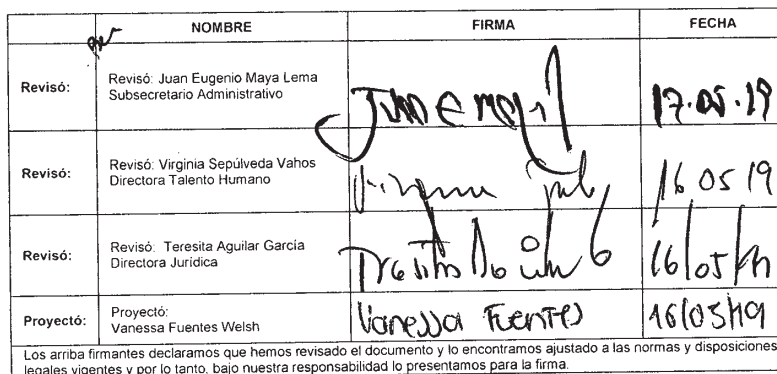 NOMBRE FIRMA FECHA
Revisó: Revisó: Juan Eugenio Maya Lema
Subsecretario Administrativo
17.05.19
Revisó: Revisó: Virginia Sepúlveda Vahos
Directora Talento Humano
16 05 19
Revisó: Revisó: Teresita Aguilar García
Directora Jurídica
16/05/19
Proyectó: Proyectó:
Vanessa Fuentes Welsh
Vanessa Fuentes 16/05/19
Los arriba firmantes declaramos que hemos revisado el documento y lo encontramos ajustado a las normas y disposiciones
legales vigentes y por lo tanto, bajo nuestra responsabilidad lo presentamos para la firma.